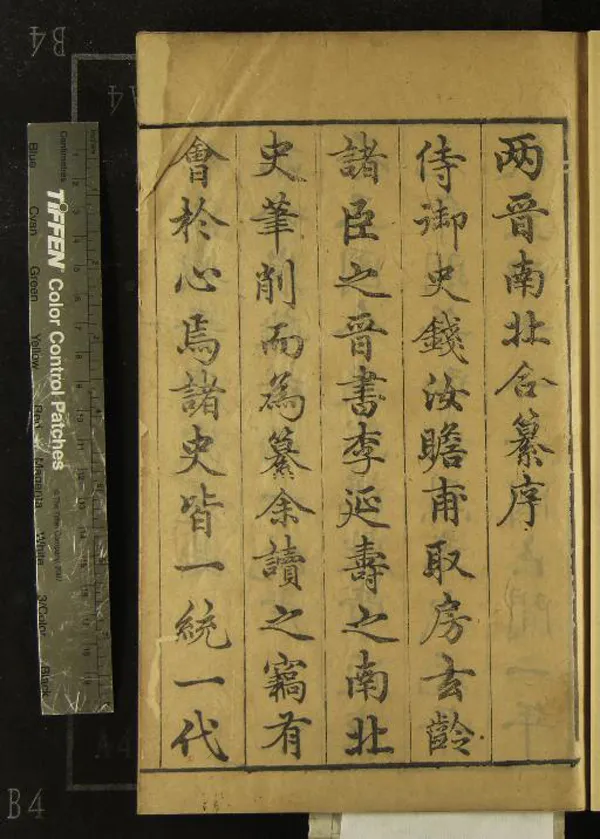 两晋南北合纂序
侍御史錢汝瞻甫取房玄齡
諸臣之晋書李延壽之南北
史筆削而為纂余讀之竊有
會於心焉諸史皆一統一代
B4
A4
B4
A4
Centimetres
Inches
TIFFEN Color Control Patches
© The Tiffen Company, 2007
Blue
Cyan
Green
Yellow
Red
Magenta
White
3/Color
Black